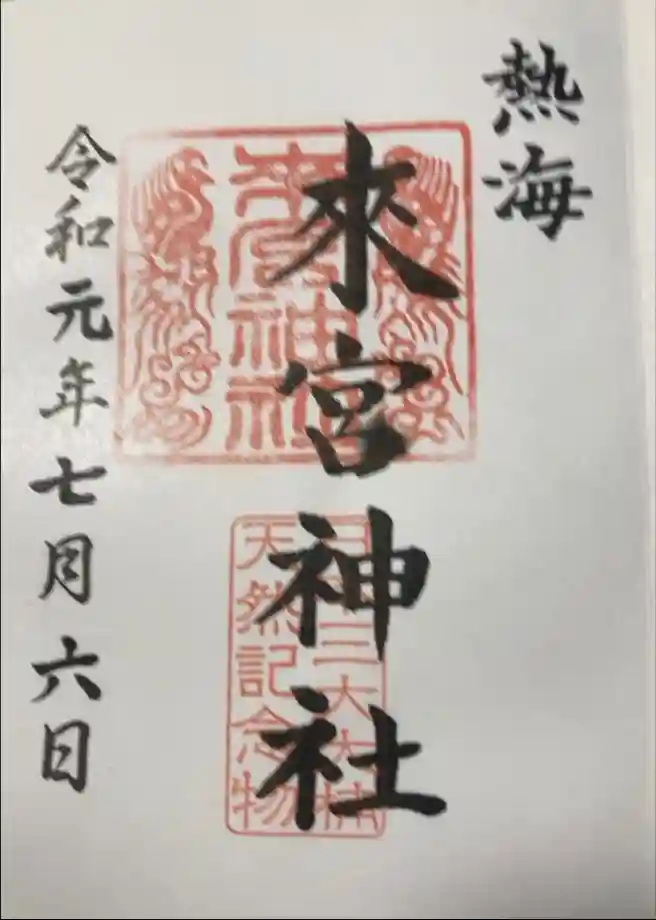 熱海
來宮神社
令和元年七月六日
來宮神社
日本三大大楠
天然記念物